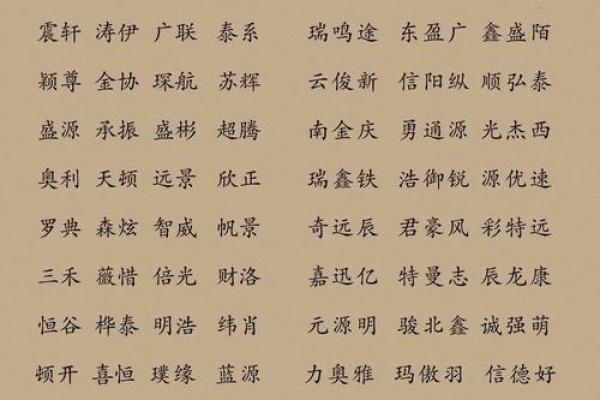 震轩 涛伊 广联 泰系 瑞鸣途 东盈广 鑫盛陌
颖尊 金协 琛航 苏辉 云俊新 信阳纵 顺弘泰
盛源 承振 盛彬 超腾 南金庆 勇通源 光杰西
奥利 天顿 远景 欣正 瑞鑫铁 浩御锐 源优速
罗典 森炫 智威 帆景 奇远辰 君豪风 彩特远
三禾 薇惜 倍光 财洛 嘉迅亿 特曼志 辰龙康
恒谷 桦泰 明浩 纬肖 元源明 骏北鑫 诚强萌
顿开 喜恒 璞缘 蓝源 力奥雅 玛傲羽 信德好